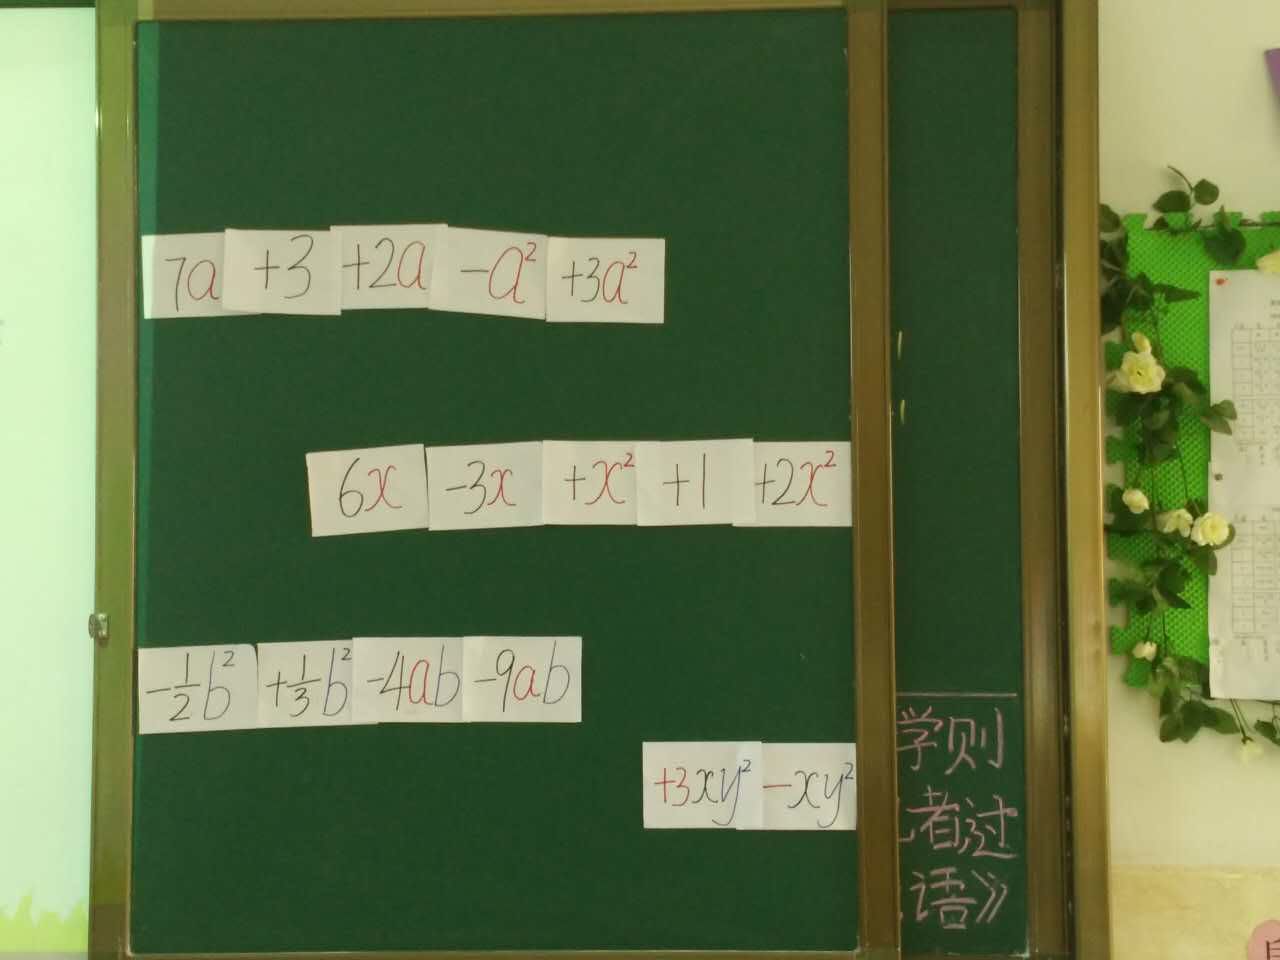 7a +3 +2a -a² +3a²
6x -3x +x² +1 +2x²
-1/2b² +1/3b² -4ab -9ab
+3xy² -xy²
学则
者过
语》